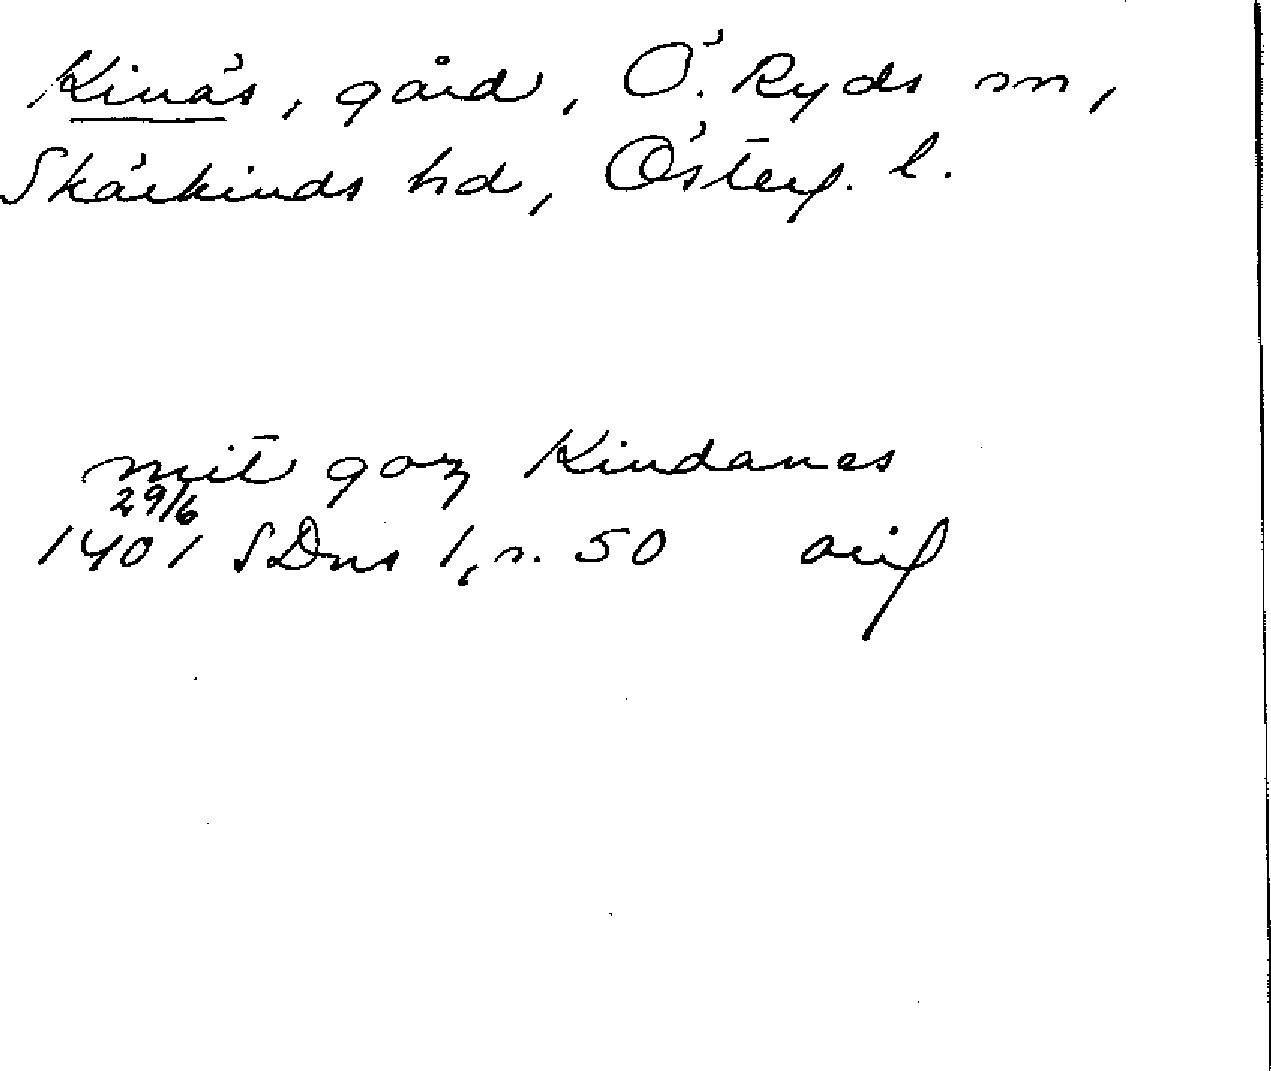 Kinäs, gård, Ö. Ryds sn,
Skärkinds hd, Österg. l.
mit goz Kindanes
29/6
1401 SDns 1, s. 50 orig